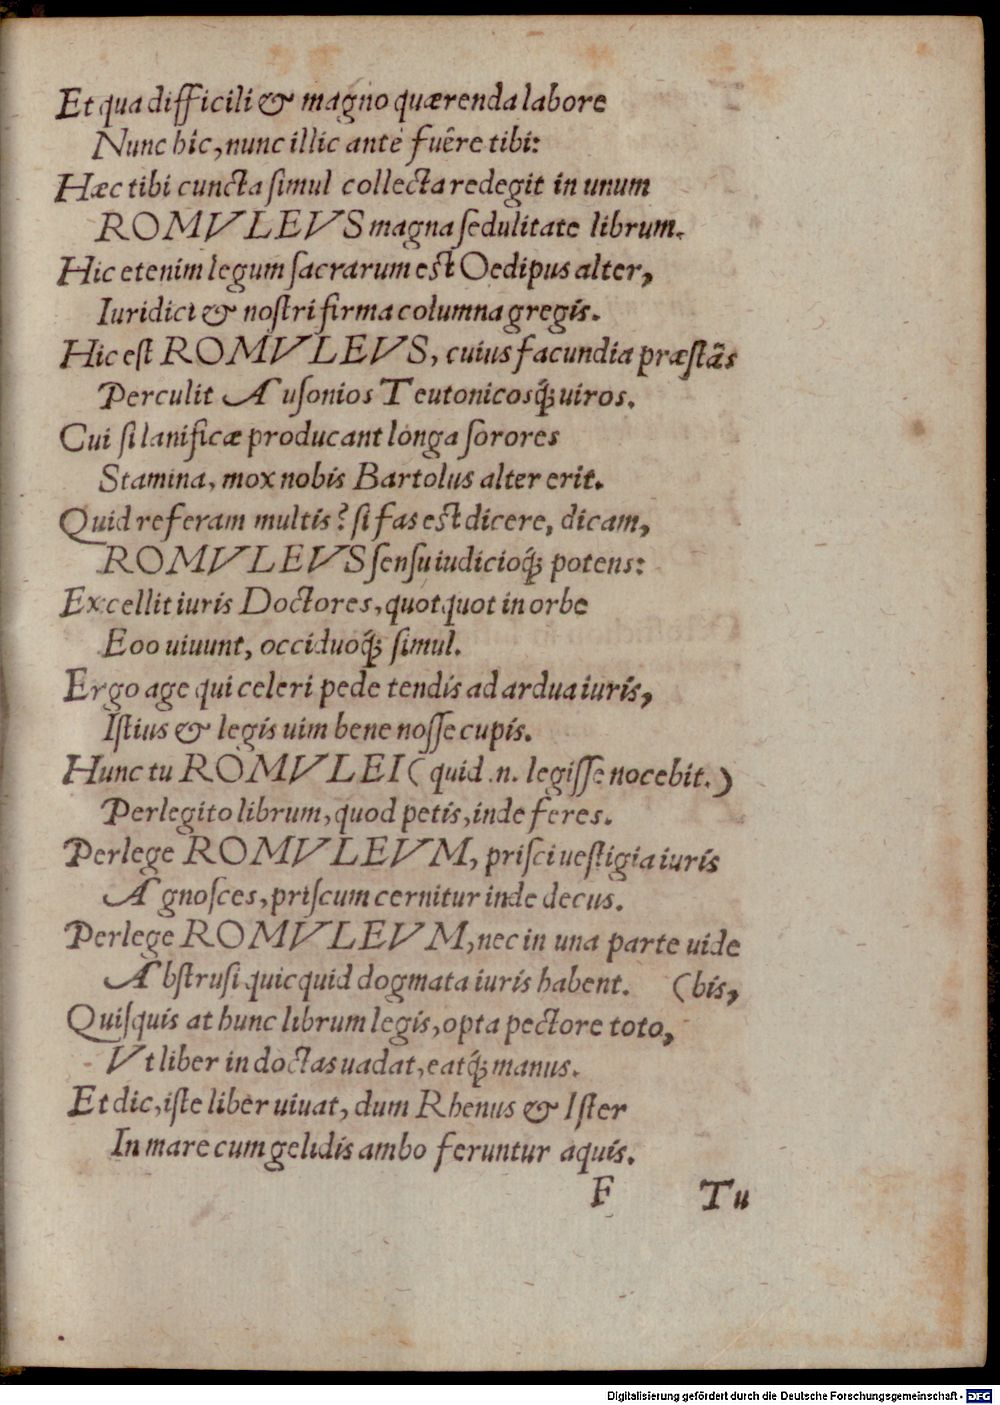 Et qua difficili & magno quærenda labore
Nunc hic, nunc illic ante fuêre tibi:
Hæc tibi cuncta simul collecta redegit in unum
ROMVLEVS magna sedulitate librum.
Hic etenim legum sacrarum est Oedipus alter,
Iuridici & nostri firma columna gregis.
Hic est ROMVLEVS, cuius facundia præstãs
Perculit Ausonios Teutonicosq́; uiros.
Cui si lanificæ producant longa sorores
Stamina, mox nobis Bartolus alter erit.
Quid referam multis? si fas est dicere, dicam,
ROMVLEVS sensu iudicioq́; potens:
Excellit iuris Doctores, quotquot in orbe
Eoo uiuunt, occiduoq́; simul.
Ergo age qui celeri pede tendis ad ardua iuris,
Istius & legis uim bene nosse cupis.
Hunc tu ROMVLEI (quid .n. legisse nocebit.)
Perlegito librum, quod petis, inde feres.
Perlege ROMVLEVM, prisci uestigia iuris
Agnosces, priscum cernitur inde decus.
Perlege ROMVLEVM, nec in una parte uide
Abstrusi quicquid dogmata iuris habent. (bis,
Quisquis at hunc librum legis, opta pectore toto,
Vt liber in doctas uadat, eatq́; manus.
Et dic, iste liber uiuat, dum Rhenus & Ister
In mare cum gelidis ambo feruntur aquis.
F Tu
Digitalisierung gefördert durch die Deutsche Forschungsgemeinschaft - DFG